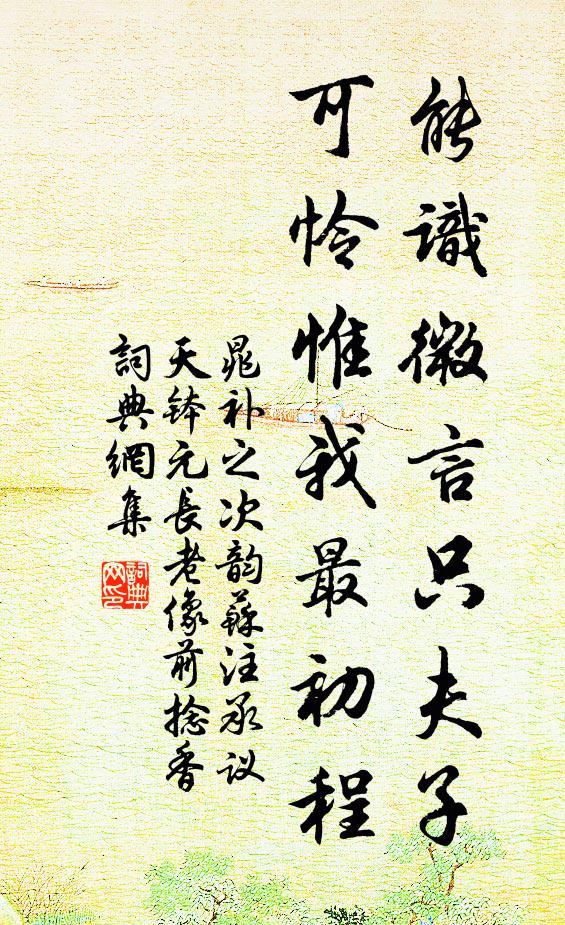 能識微言只夫子
可怜惟我最初程
晁补之次韵蘇注承议
天钵元長老像前捻香
詞典網集
詞典
网印